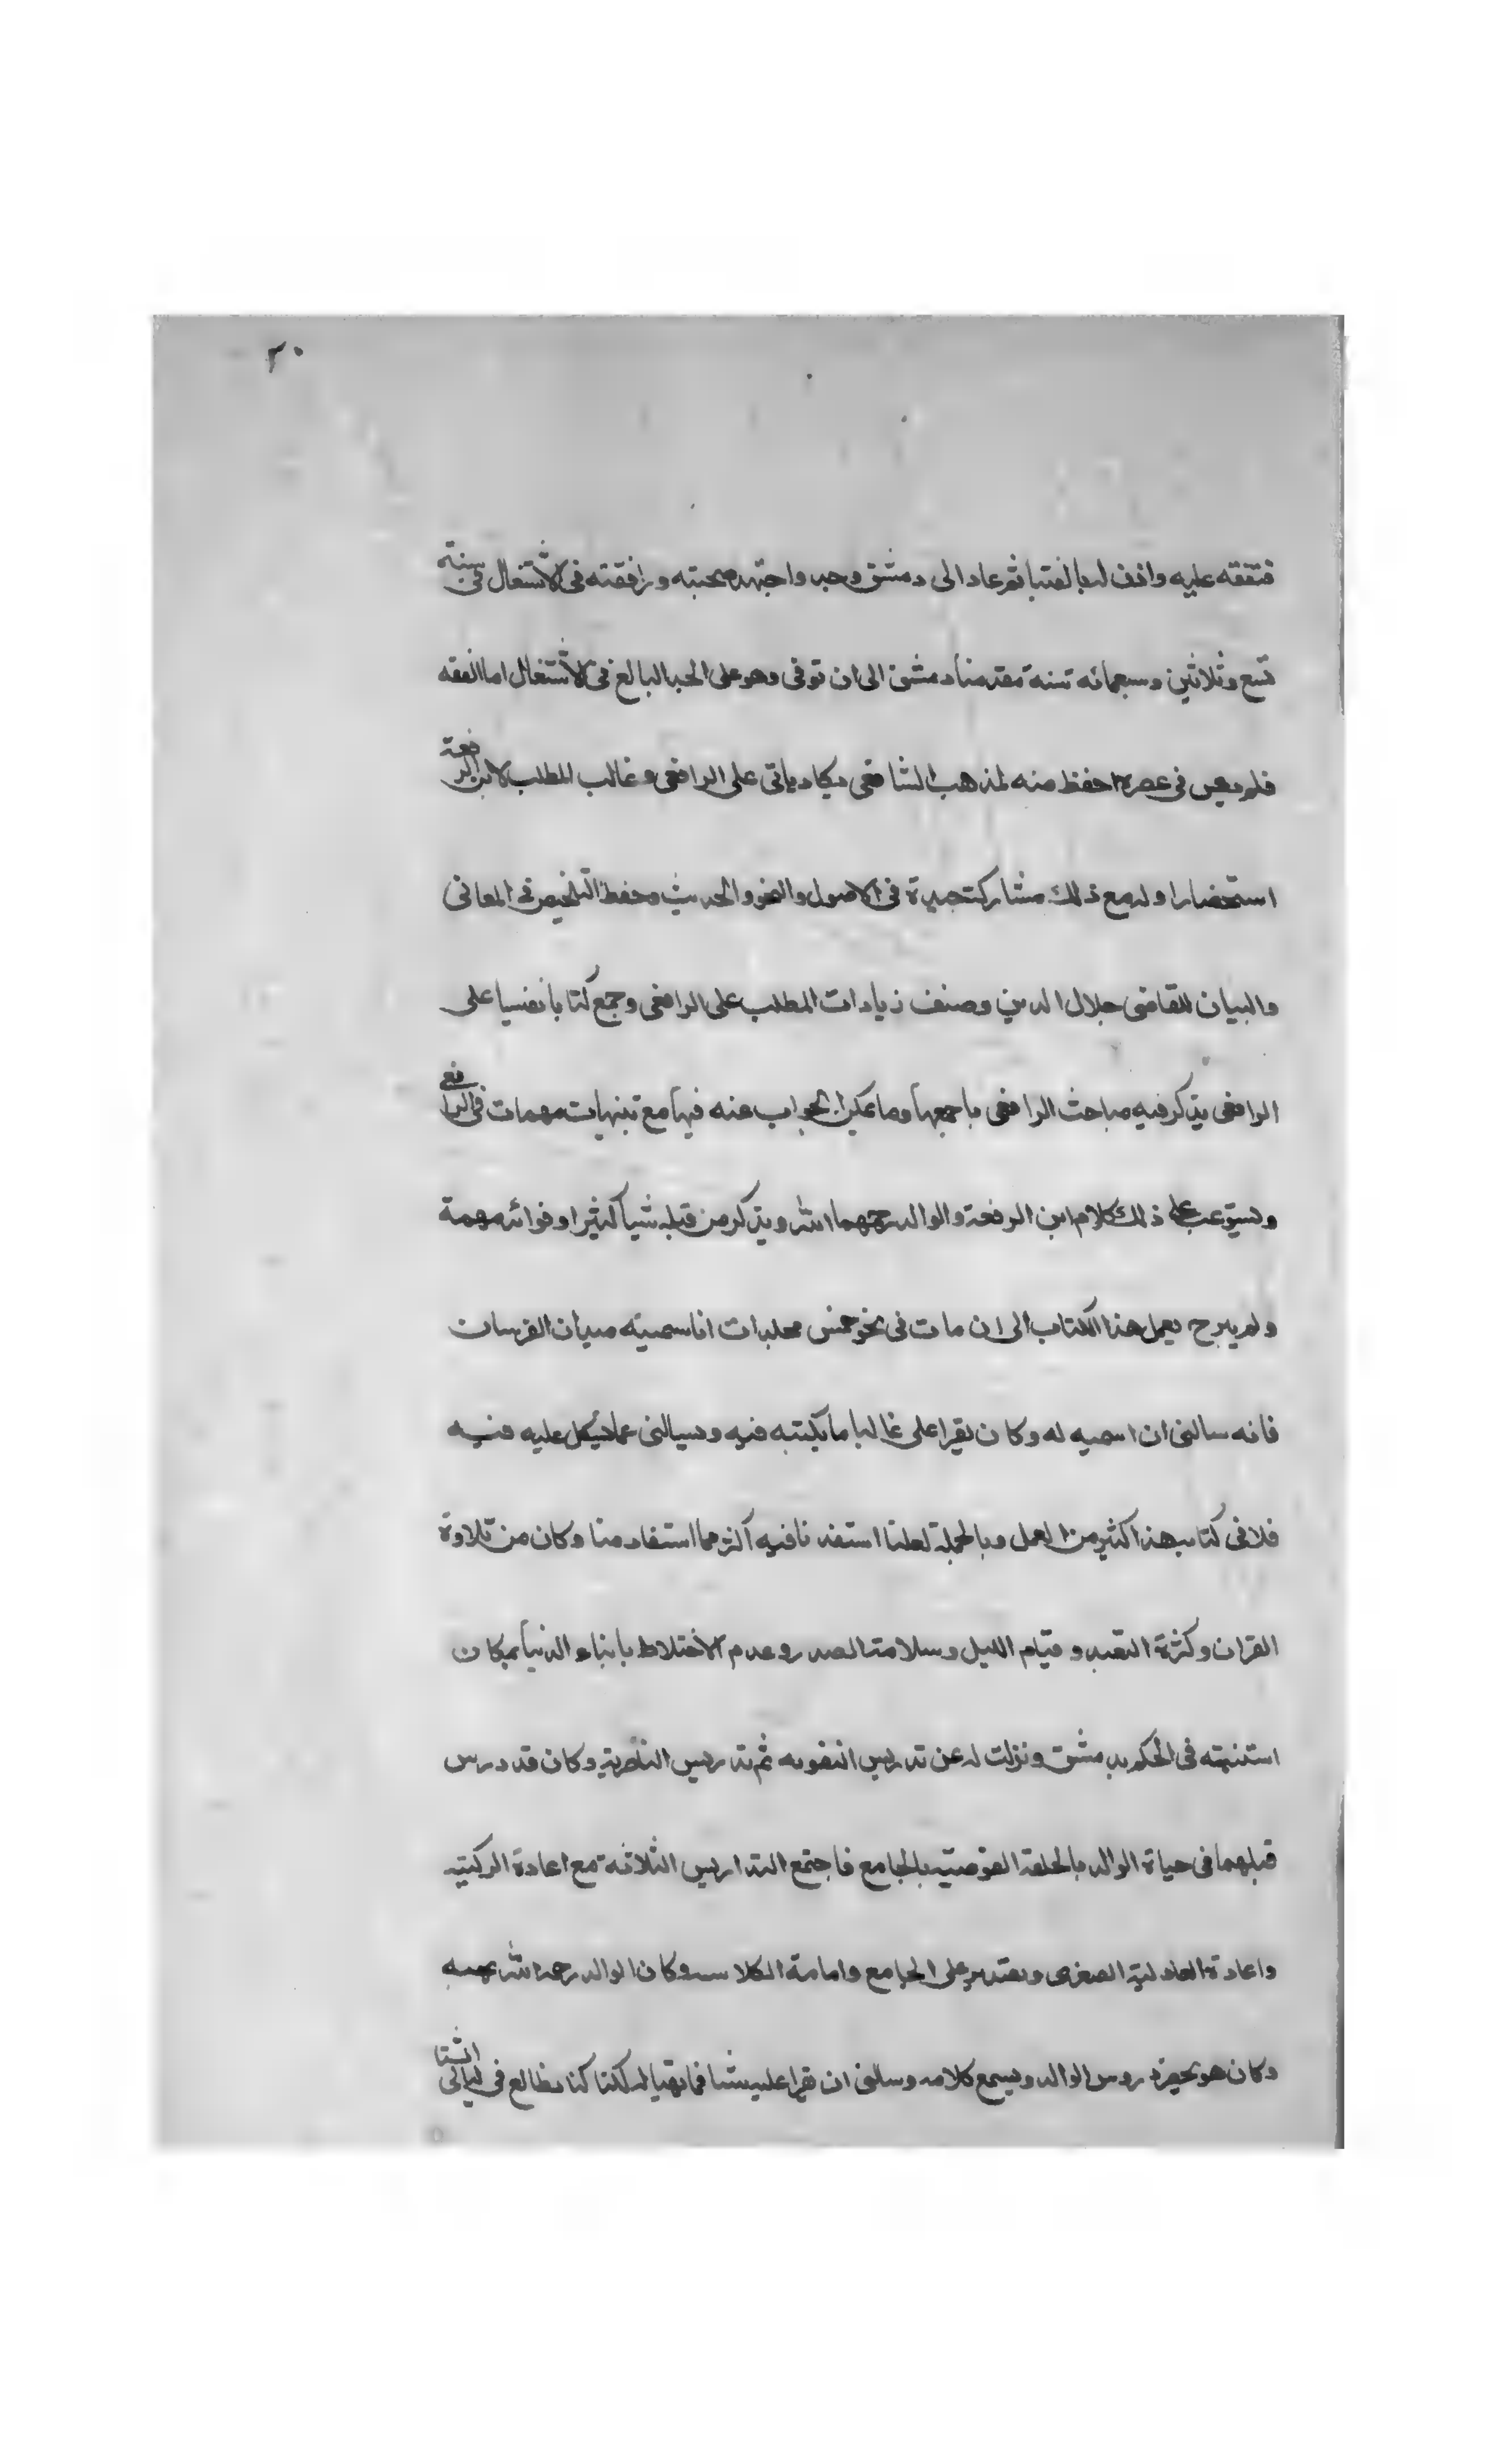 ٢٠
فتفقه عليه واذن له بالفتيا ثم عاد الى دمشق وجد واجتهد صحبته ورافقته في الاشتغال في سنة
تسع وثلاثين وسبعمائه سنة مقدمنا دمشق الى ان توفى وهو على الجد البالغ في الاشتغال اما الفقه
فلم يكن في عصره احفظ منه لمذهب الشافعى يكاد ياتى على الرافعى وغالب المطلب لابن الرفعة
استحضارا وله مع ذلك مشاركت جيدة في الاصول والنحو والحديث وحفظ التلخيص في المعانى
والبيان للقاضى جلال الدين وصنف زيادات المطلب على الرافعى وجمع كتابا نفسيا على
الرافعى يذكر فيه مباحث الرافعى باجمعها وما يمكن الجواب عنه فيها مع تنبيهات مهمات في الرافع
ويستوعب على ذلك كلام ابن الرفعة والوالد رحمهما الله ويذكر من قبله شيأ كثيرا وفوائد مهمة
ولم يبرح يعمل هذا الكتاب الى ان مات في نحو خمس مجلدات انا سميته ميدان الفرسان
فانه سالنى ان اسميه له وكان يقرا على غالبا ما يكتبه فيه ويسالنى عما يشكل عليه فيه
فلا في كتابه هذا كثير من العمل وبالجملة لعلنا استفدنا فيه اكثر مما استفاد منا وكان من تلاوة
القران وكثرة التعبد وقيام الليل وسلامة الصدر وعدم الاختلاط بابناء الدنيا بمكان
استنبته في الحكم بدمشق ونزلت له عن تدريس التقويه ثم تدريس الناصرية وكان قد درس
قبلهما في حياة الوالد بالحلقة القوصيه بالجامع فاجتمع التداريس الثلاثة مع اعادة الركنيه
واعادة العادلية الصغرى وتصدير على الجامع وامامة الكلاسه وكان الوالد رحمه الله يحبه
وكان هو يحضر دروس الوالد ويسمع كلامه وسالنى ان يقرا عليه شيا فما تهيا له لكنا كنا نطالع في ليالى الشتا